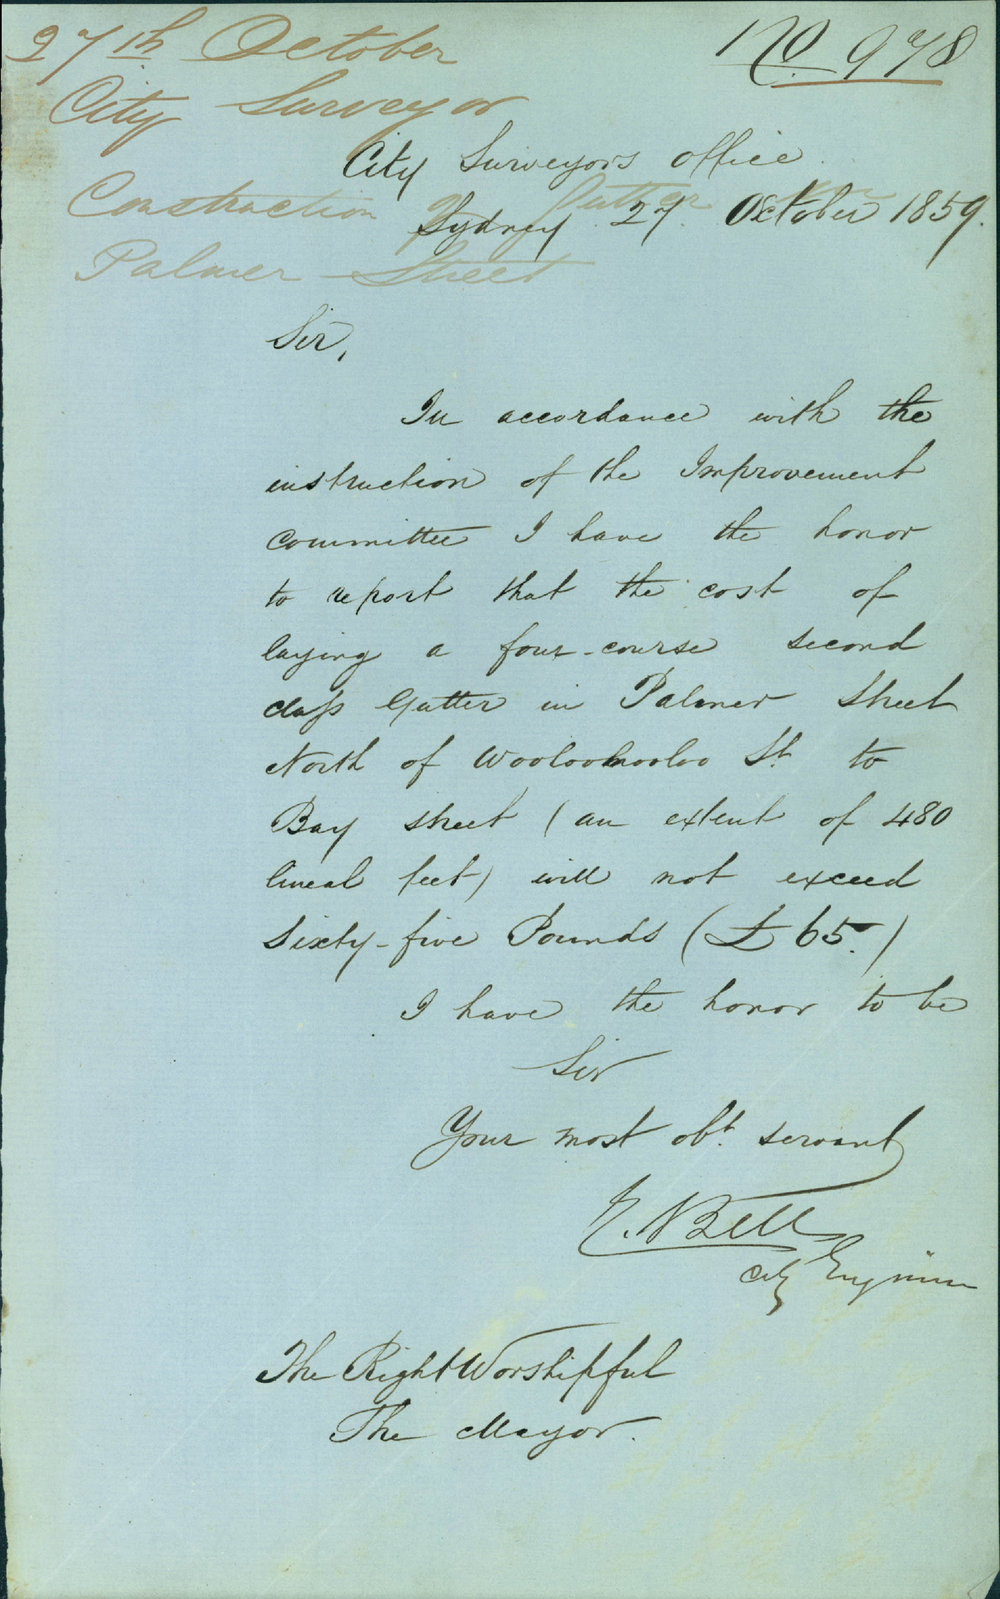 27th October
No. 978
City Surveyor
City Surveyors office
Construction of Gutter in
Sydney 27. October 1859.
Palmer Street
Sir,
In accordance with the
instruction of the Improvement
Committee I have the honor
to report that the cost of
laying a four-course second
class Gutter in Palmer Street
North of Woolloomooloo St. to
Bay street (an extent of 480
lineal feet) will not exceed
Sixty-five Pounds (£65.)
I have the honor to be
Sir
Your most obt. servant
E. Bell
City Engineer
The Right Worshipful
The Mayor.